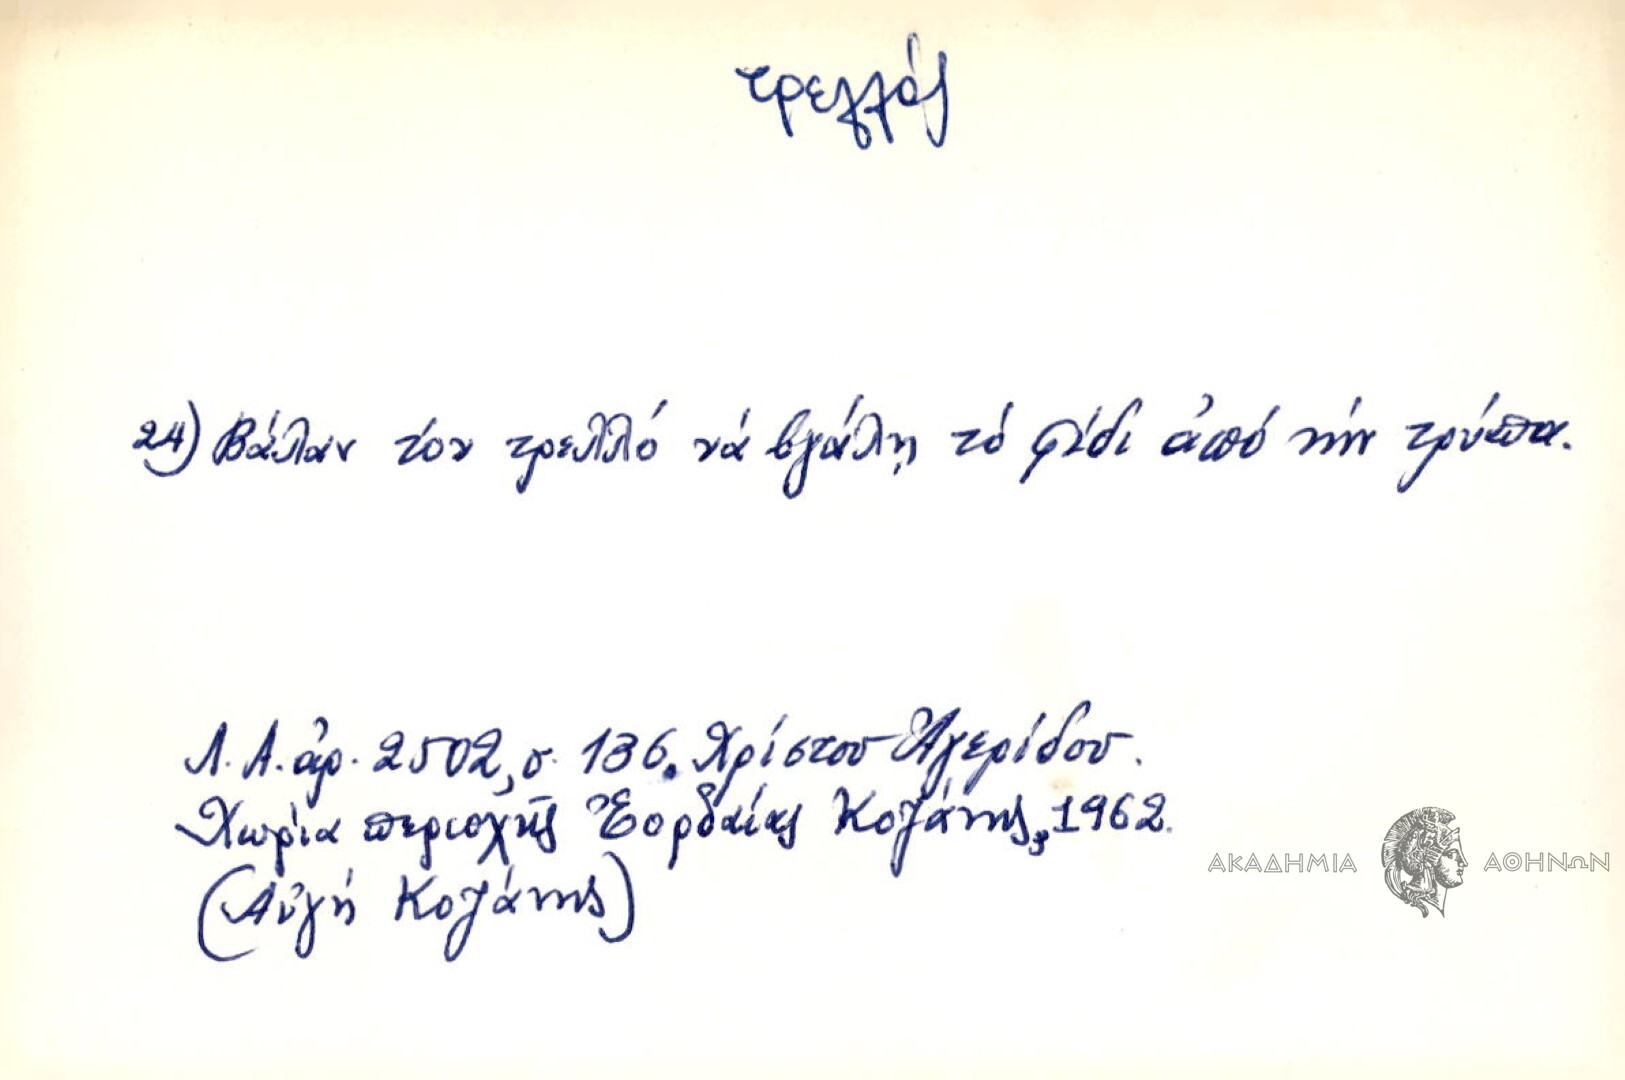 τρελλός
24) Βάλαν τόν τρελλό νά βγάλῃ τό φίδι ἀπό τήν τρύπα.
Λ.Α. ἀρ. 2502, σ. 136. Χρίστου Ἀγερίδου.
Χωριά περιοχῆς Ἐορδαίας Κοζάνης, 1962.
(Αὐγή Κοζάνης)
ΑΚΑΔΗΜΙΑ ΑΘΗΝΩΝ